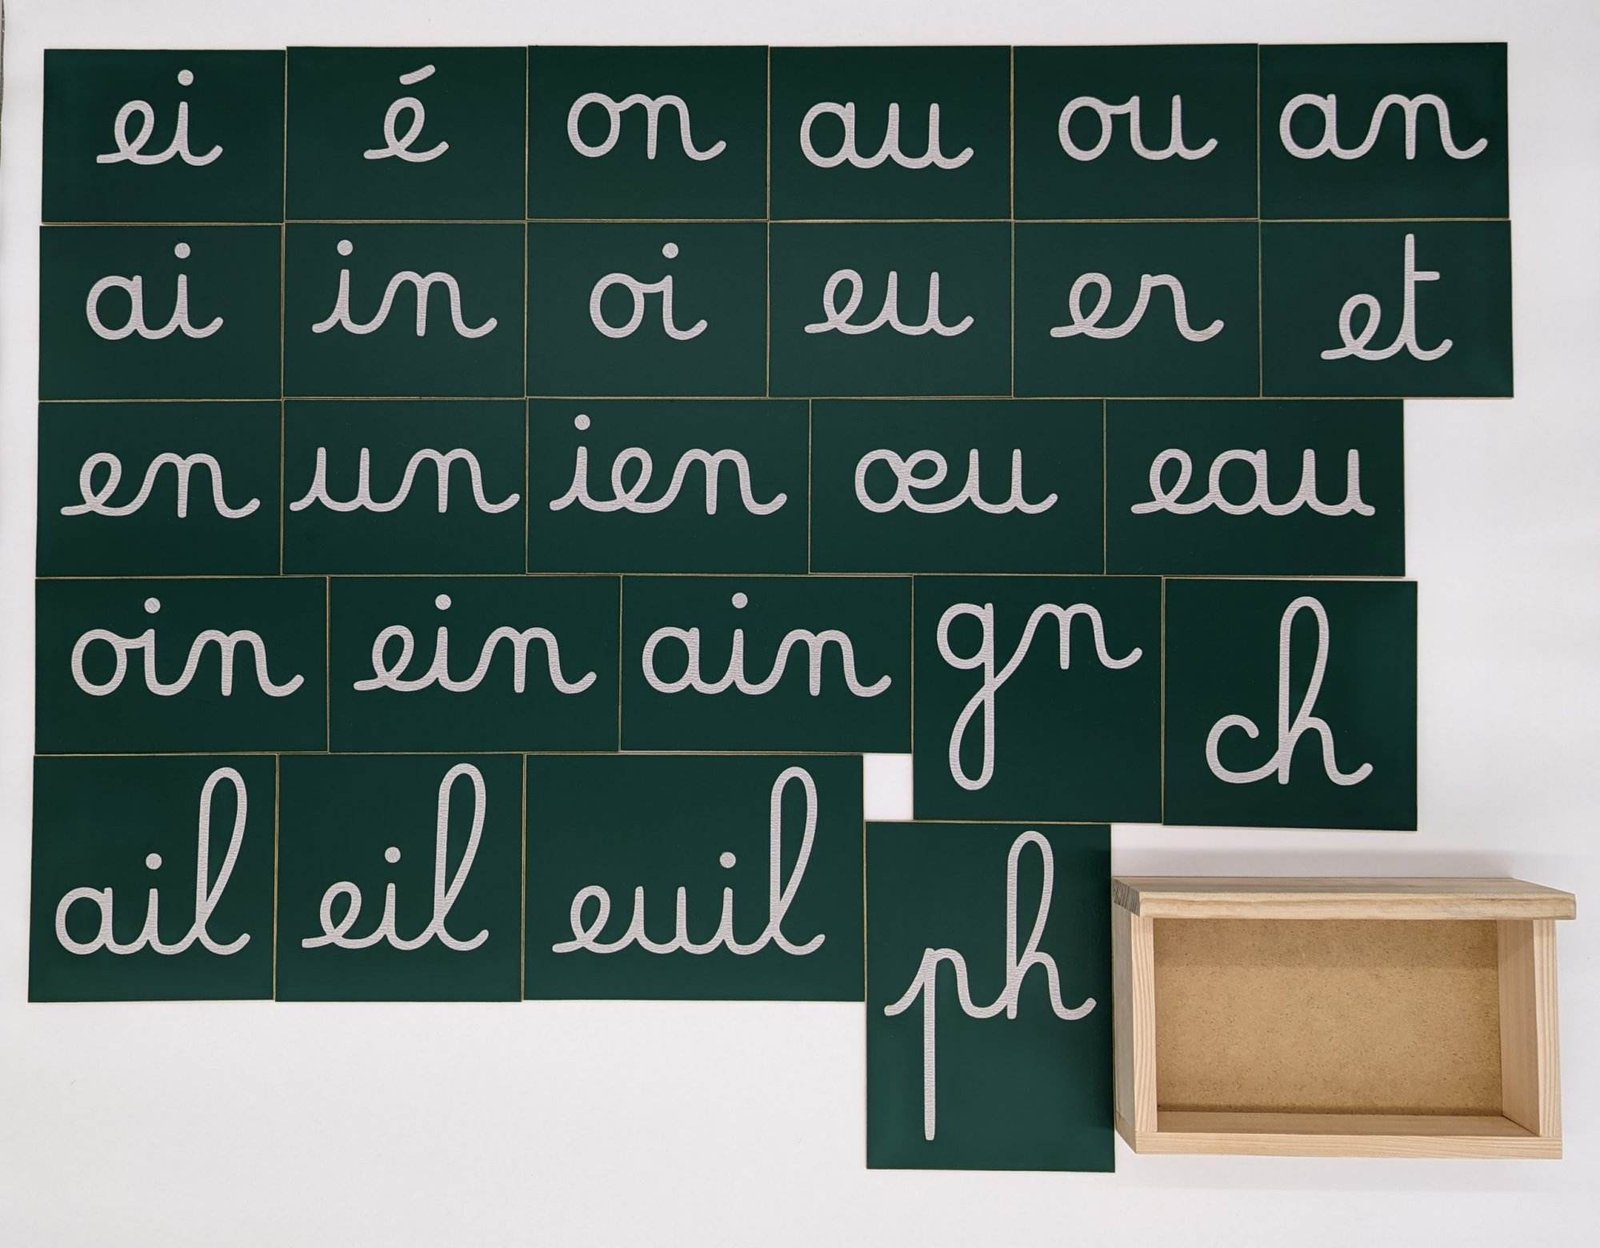 ei é on au ou an
ai in oi eu er et
en un ien œu eau
oin ein ain gn ch
ail eil euil ph